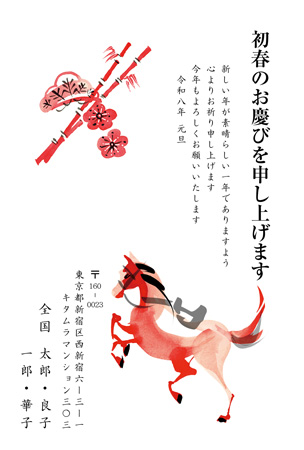 初春のお慶びを申し上げます
新しい年が素晴らしい一年でありますよう
心よりお祈り申し上げます
今年もよろしくお願いいたします
令和八年 元旦
〒160-0023
東京都新宿区西新宿六ー三ー一
キタムラマンション三〇三
全国 太郎・良子
一郎・華子